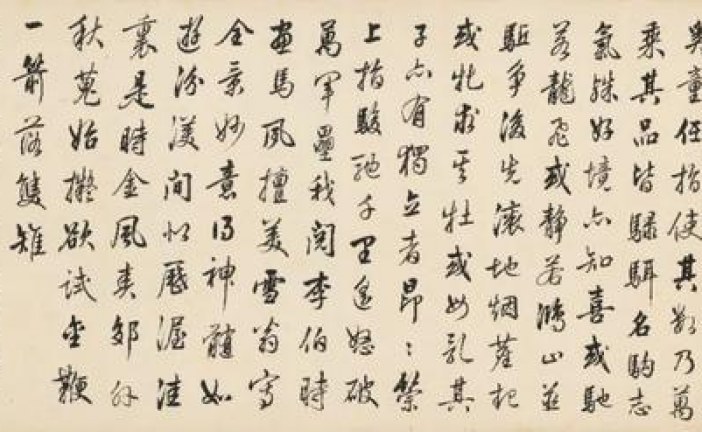 奚童任指使其數乃萬
乘其品皆騄駬名駒志
氣殊好境亦知喜或馳
若龍飛或靜若鴻止並
駈爭後先滾地烟塵起
或牝求其牡或母乳其
子亦有獨立者昂〻
上指駿馳千里遙怒破
萬軍壘我閱李伯時
畫馬夙擅美雪翁寫
全景妙意得神髓如
遊汾渼間似歷渥洼
裏是時金風爽郊外
秋蒐始擬欲試鞭
一箭落雙雉